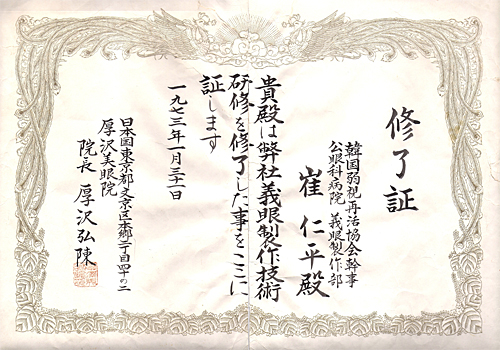 修了証
韓国弱視再活協会幹事
公眼科病院 義眼製作部
崔仁平殿
貴殿は弊社義眼製作技術
研修を修了した事をここに
証します
一九七三年一月三十一日
日本国東京都文京区本郷二丁目四十の二
厚沢美眼院
院長 厚沢弘陳